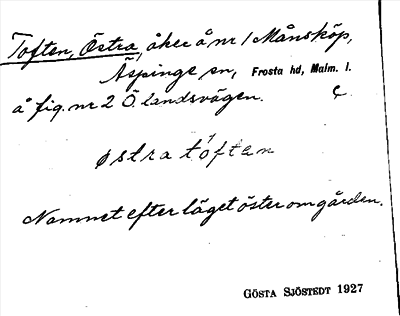 Toften, Östra, åker å nr 1 Månsköp,
Äspinge sn, Frosta hd, Malm. l.
å fig. nr 2 Ö. landsvägen.
østra tóften
Namnet efter läget öster om gården.
GÖSTA SJÖSTEDT 1927